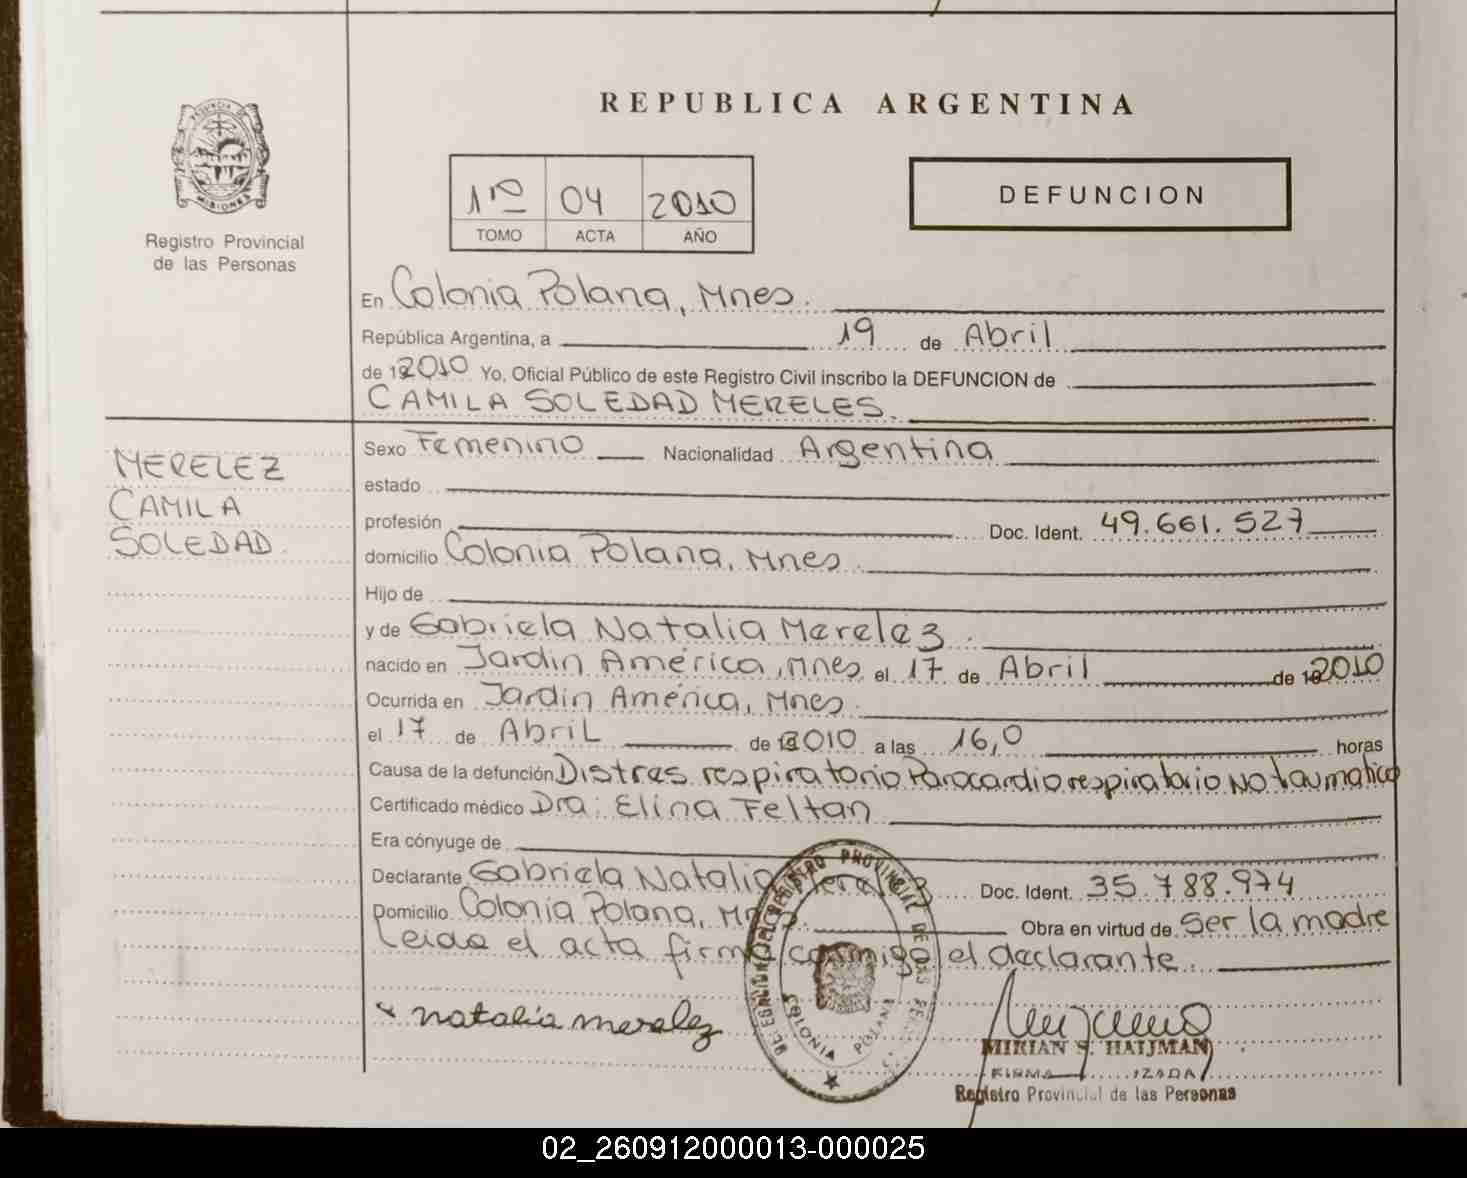 REPUBLICA ARGENTINA
PROVINCIA DE
MISIONES
Registro Provincial
de las Personas
1ro 04 2010
TOMO ACTA AÑO
DEFUNCION
En Colonia Polana, Mnes.
República Argentina, a 19 de Abril
de 192010 Yo, Oficial Público de este Registro Civil inscribo la DEFUNCION de
CAMILA SOLEDAD MERELES.
MERELEZ
CAMILA
SOLEDAD
Sexo Femenino Nacionalidad Argentina
estado
profesión Doc. Ident. 49.661.527
domicilio Colonia Polana, Mnes.
Hijo de
y de Gabriela Natalia Merelez.
nacido en Jardin América, Mnes, el 17 de Abril de 192010
Ocurrida en Jardin América, Mnes.
el 17 de Abril de 2010 a las 16,0 horas
Causa de la defunción Distres respiratorio Parocardiorespiratorio No taumatico
Certificado médico Dra: Elina Feltan
Era cónyuge de
Declarante Gabriela Natalia Merelez Doc. Ident. 35.788.974
Domicilio Colonia Polana, Mnes. Obra en virtud de Ser la madre
Leida el acta firma conmigo el declarante.
x natalia merelez
REGISTRO PROVINCIAL DE LAS PERSONAS
COLONIA POLANA
MIRIAN S. HAIJMAN
FIRMA IZADA
Registro Provincial de las Personas
02_260912000013-000025